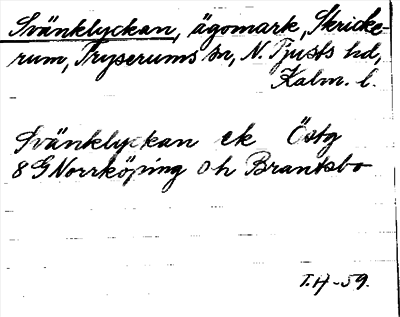 Svänklyckan, ägomark, Skricke-
rum, Tryserums sn, N. Tjusts hd,
Kalm. l.
Svänklyckan ek Östg
8 G Norrköping Oh Brantsbo
T.H-59.